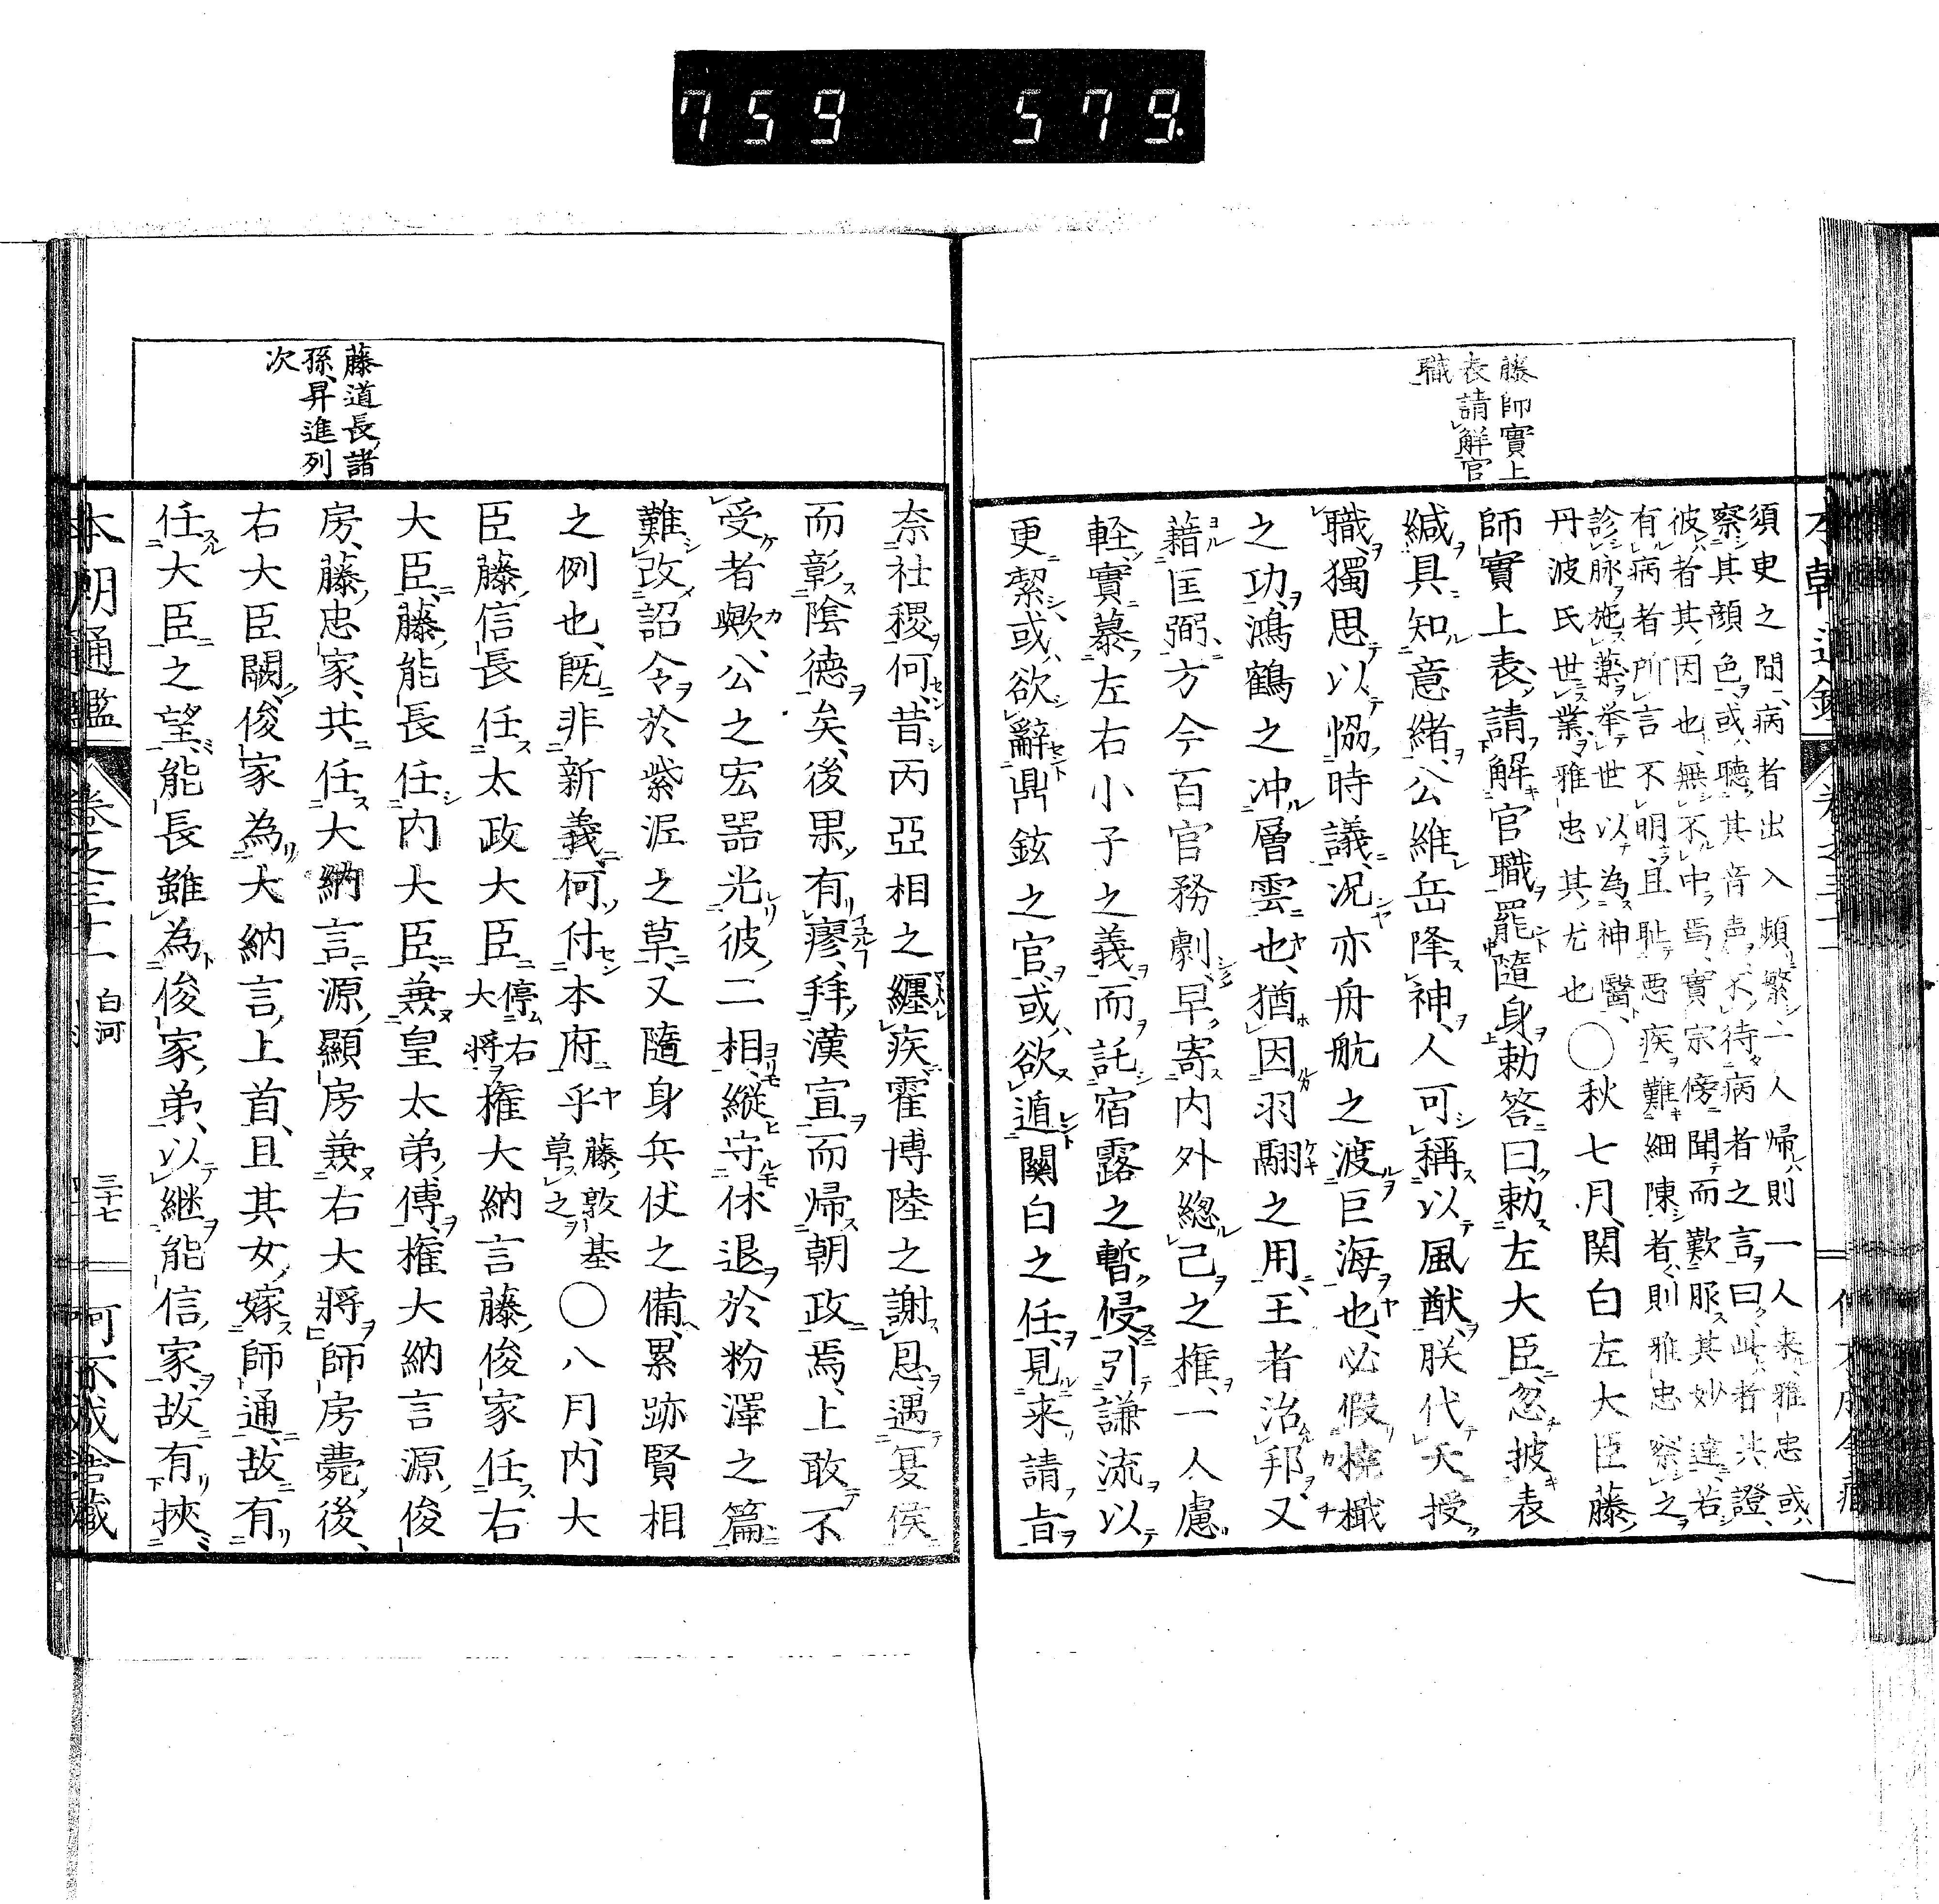 759 579.
藤師實上
表請解官
職
須更之間病者出入頻繁一人帰則一人来雅忠或
察其顔色或聽其音声不待病者之言曰此者其證
彼者其因也無不中焉實宗傍聞而歎服其妙達若
有病者所言不明且耻悪疾難細陳者則雅忠察之
診脉施藥挙世以為神醫
丹波氏世業雅忠其尤也〇秋七月関白左大臣藤
師實上表請解官職罷隨身勅答曰勅左大臣忽披表
緘具知意緒公維岳降神人可稱以風猷朕代天授
職獨思以恊時議况亦舟航之渡巨海也必假橈檝
之功鴻鶴之冲層雲也猶因羽翮之用王者治邦又
藉匡弼方今百官務劇早寄内外緫己之権一人慮
軽實慕左右小子之義而託宿露之暫侵引謙流以
更潔或欲辭鼎鉉之官或欲遁關白之任見来請旨
藤道長諸
孫昇進列
次
奈社稷何昔丙亞相之纒疾霍博陸之謝恩遇夏侯
而彰陰德矣後果有瘳拜漢宣而帰朝政焉上敢不
受者歟公之宏噐光彼二相縦守休退於粉澤之篇
難改詔令於紫泥之草又隨身兵仗之備累跡賢相
之例也既非新義何付本府乎藤敦基草之〇八月内大
臣藤信長任太政大臣停右大將権大納言藤俊家任右
大臣藤能長任内大臣兼皇太弟傅権大納言源俊
房藤忠家共任大納言源顯房兼右大將師房薨後
右大臣闕俊家為大納言上首且其女嫁師通故有
任大臣之望能長雖為俊家弟以継能信家故有挾
本朝通鑑 卷之三十一 白河 三十七